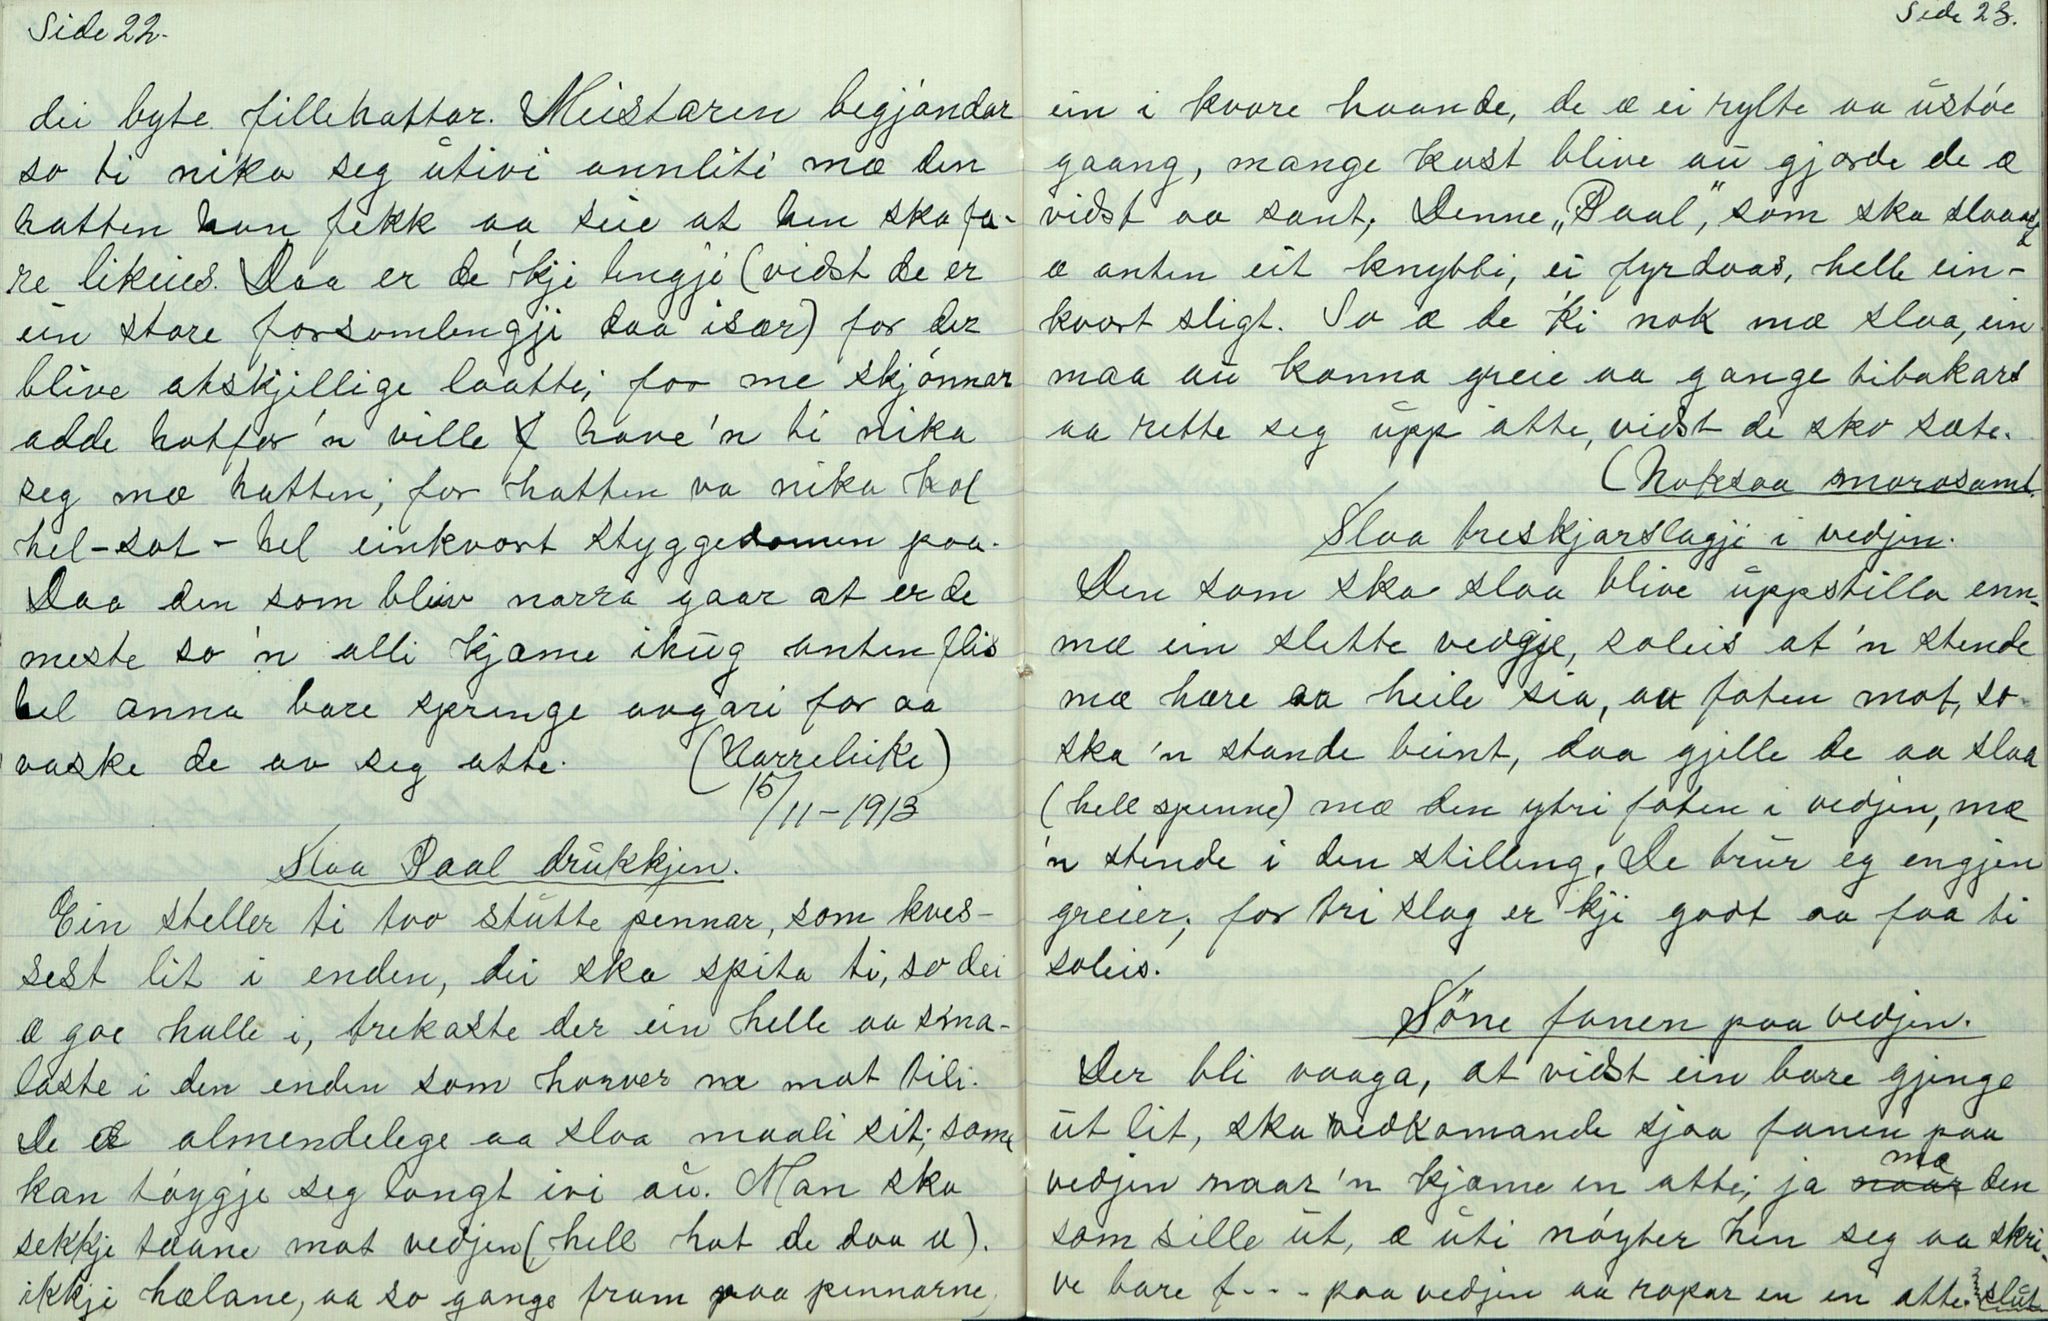 Side 22.
dei byte fillehattar. Meistaren begjøndar
so ti nika seg ůtivi annliti mæ den
hatten han fekk aa seie at hen ska fa-
re likeies. Daa er de 'kje lengje (vidst de er
ein store forsamlengji daa især) for der
blive atskjellige laatte; for me skjönnar
adde hotfor 'n ville have 'n ti nika
seg mæ hatten; for hatten va nika kol
hel - sot - hel einkvart styggedomen paa.
Daa den som bleiv narra gaar at er de
meste so 'n alli kjæme ihůg anten flis
hel anna bare springe avgari for aa
vaske de av seg atte. (Narreleike)
15/11-1913
Slaa Paal drůkkjen.
Ein steller ti tvo stůtte pennar, som kves-
sest lit i enden, dei ska spita ti, so dei
æ goe halle i, trekaste der ein helle aa sma-
laste i den enden som horver næ mot tili.
De æ almendelege aa slaa maali sit; some
kan tóygje seg langt ivi aů. Man ska
sekkje taane mot vedjen (hell hot de daa æ).
ikkje hælane, aa so gange fram paa pennarne,
Side 23.
ein i kvare haande, de æ ei rylte aa ůstóe
gaang, mange kast blive aů gjorde de æ
vidst aa sant; Denne „Paal", som ska slaaas
æ anten eit knybbi, ei fyrdaas, helle ein-
kvart sligt. So æ de 'ki nok mæ slaa, ein
maa aů kanna greie aa gange tibakars
aa rette seg ůpp atte, vidst de sko sæte.
(Noksaa morosamt.
Slaa treskjarslagji i vedjen.
Den som ska slaa blive ůppstilla enn-
mæ ein slette vedgje, soleis at 'n stende
mæ hære aa heile sia, au foten mot, so
ska 'n stande beint, daa gjelle de aa slaa
(hell spenne) mæ den ytri foten i vedjen, mæ
'n stende i den stilleng. De trůr eg engjen
greier; for tri slag er 'kji godt aa faa ti
soleis.
Söne fanen paa vedjen.
Der bli vaaga, at vidst ein bare gjenge
ůt lit, ska vedkomande sjaa fanen paa
vedjen naar 'n kjæme en atte; ja mæ den
som sille ůt, æ ůti nóyter hen seg aa skri-
ve bare f--- paa vedjen aa ropar en en atte. slůt